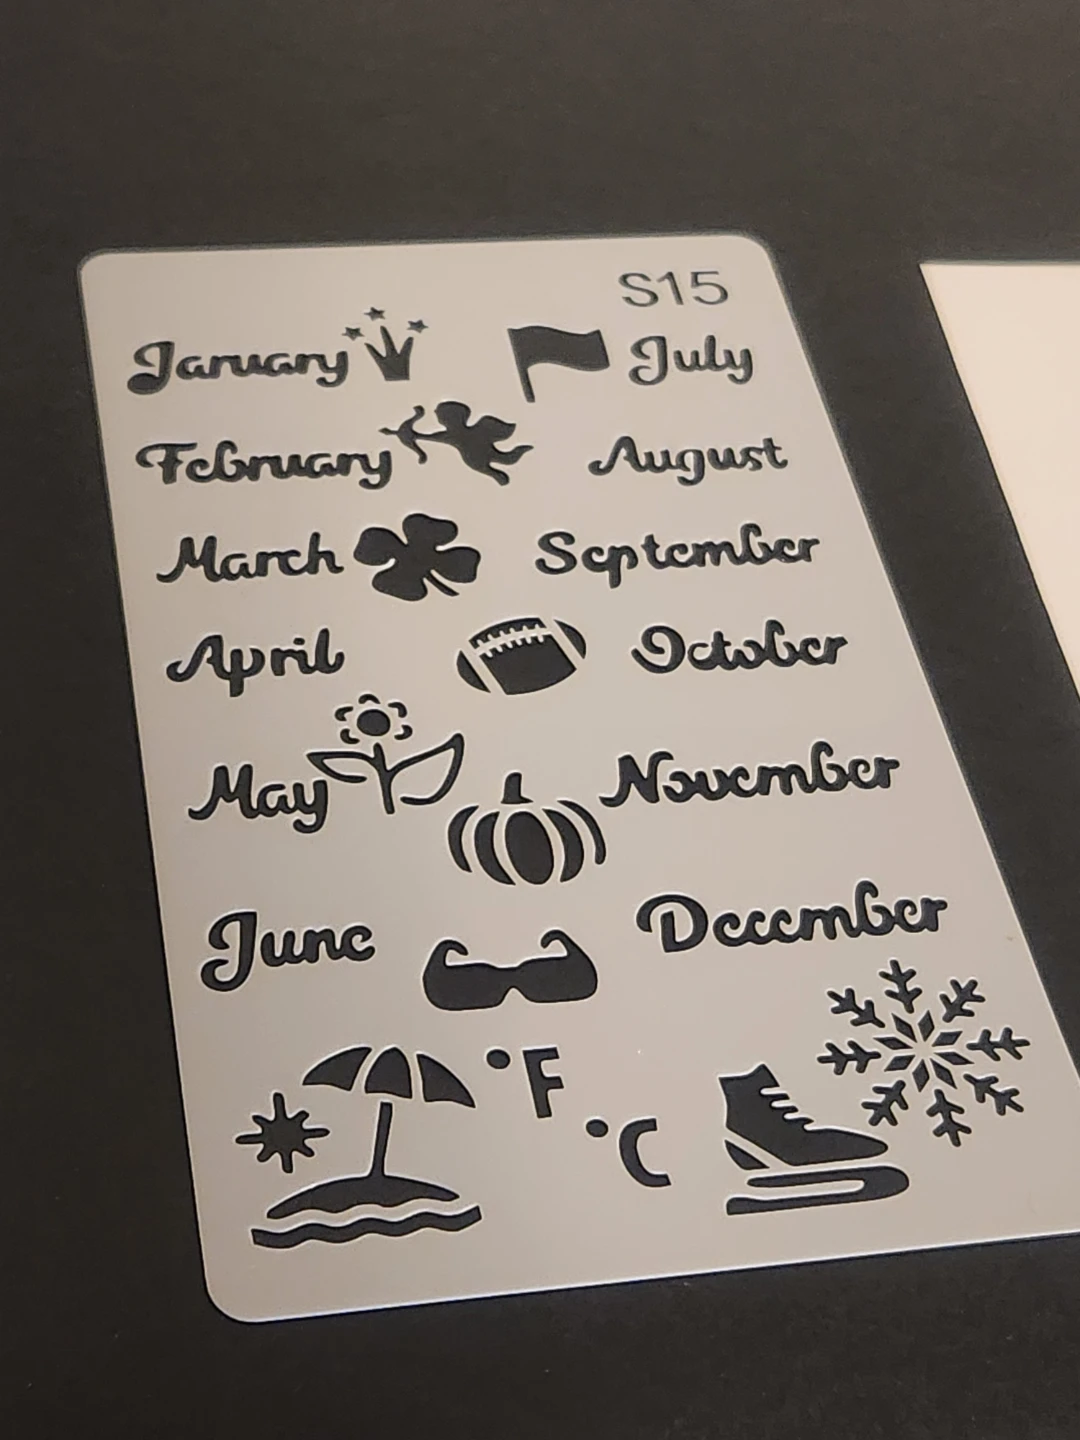 S15
January July
February August
March September
April October
May November
June December
°F
°C